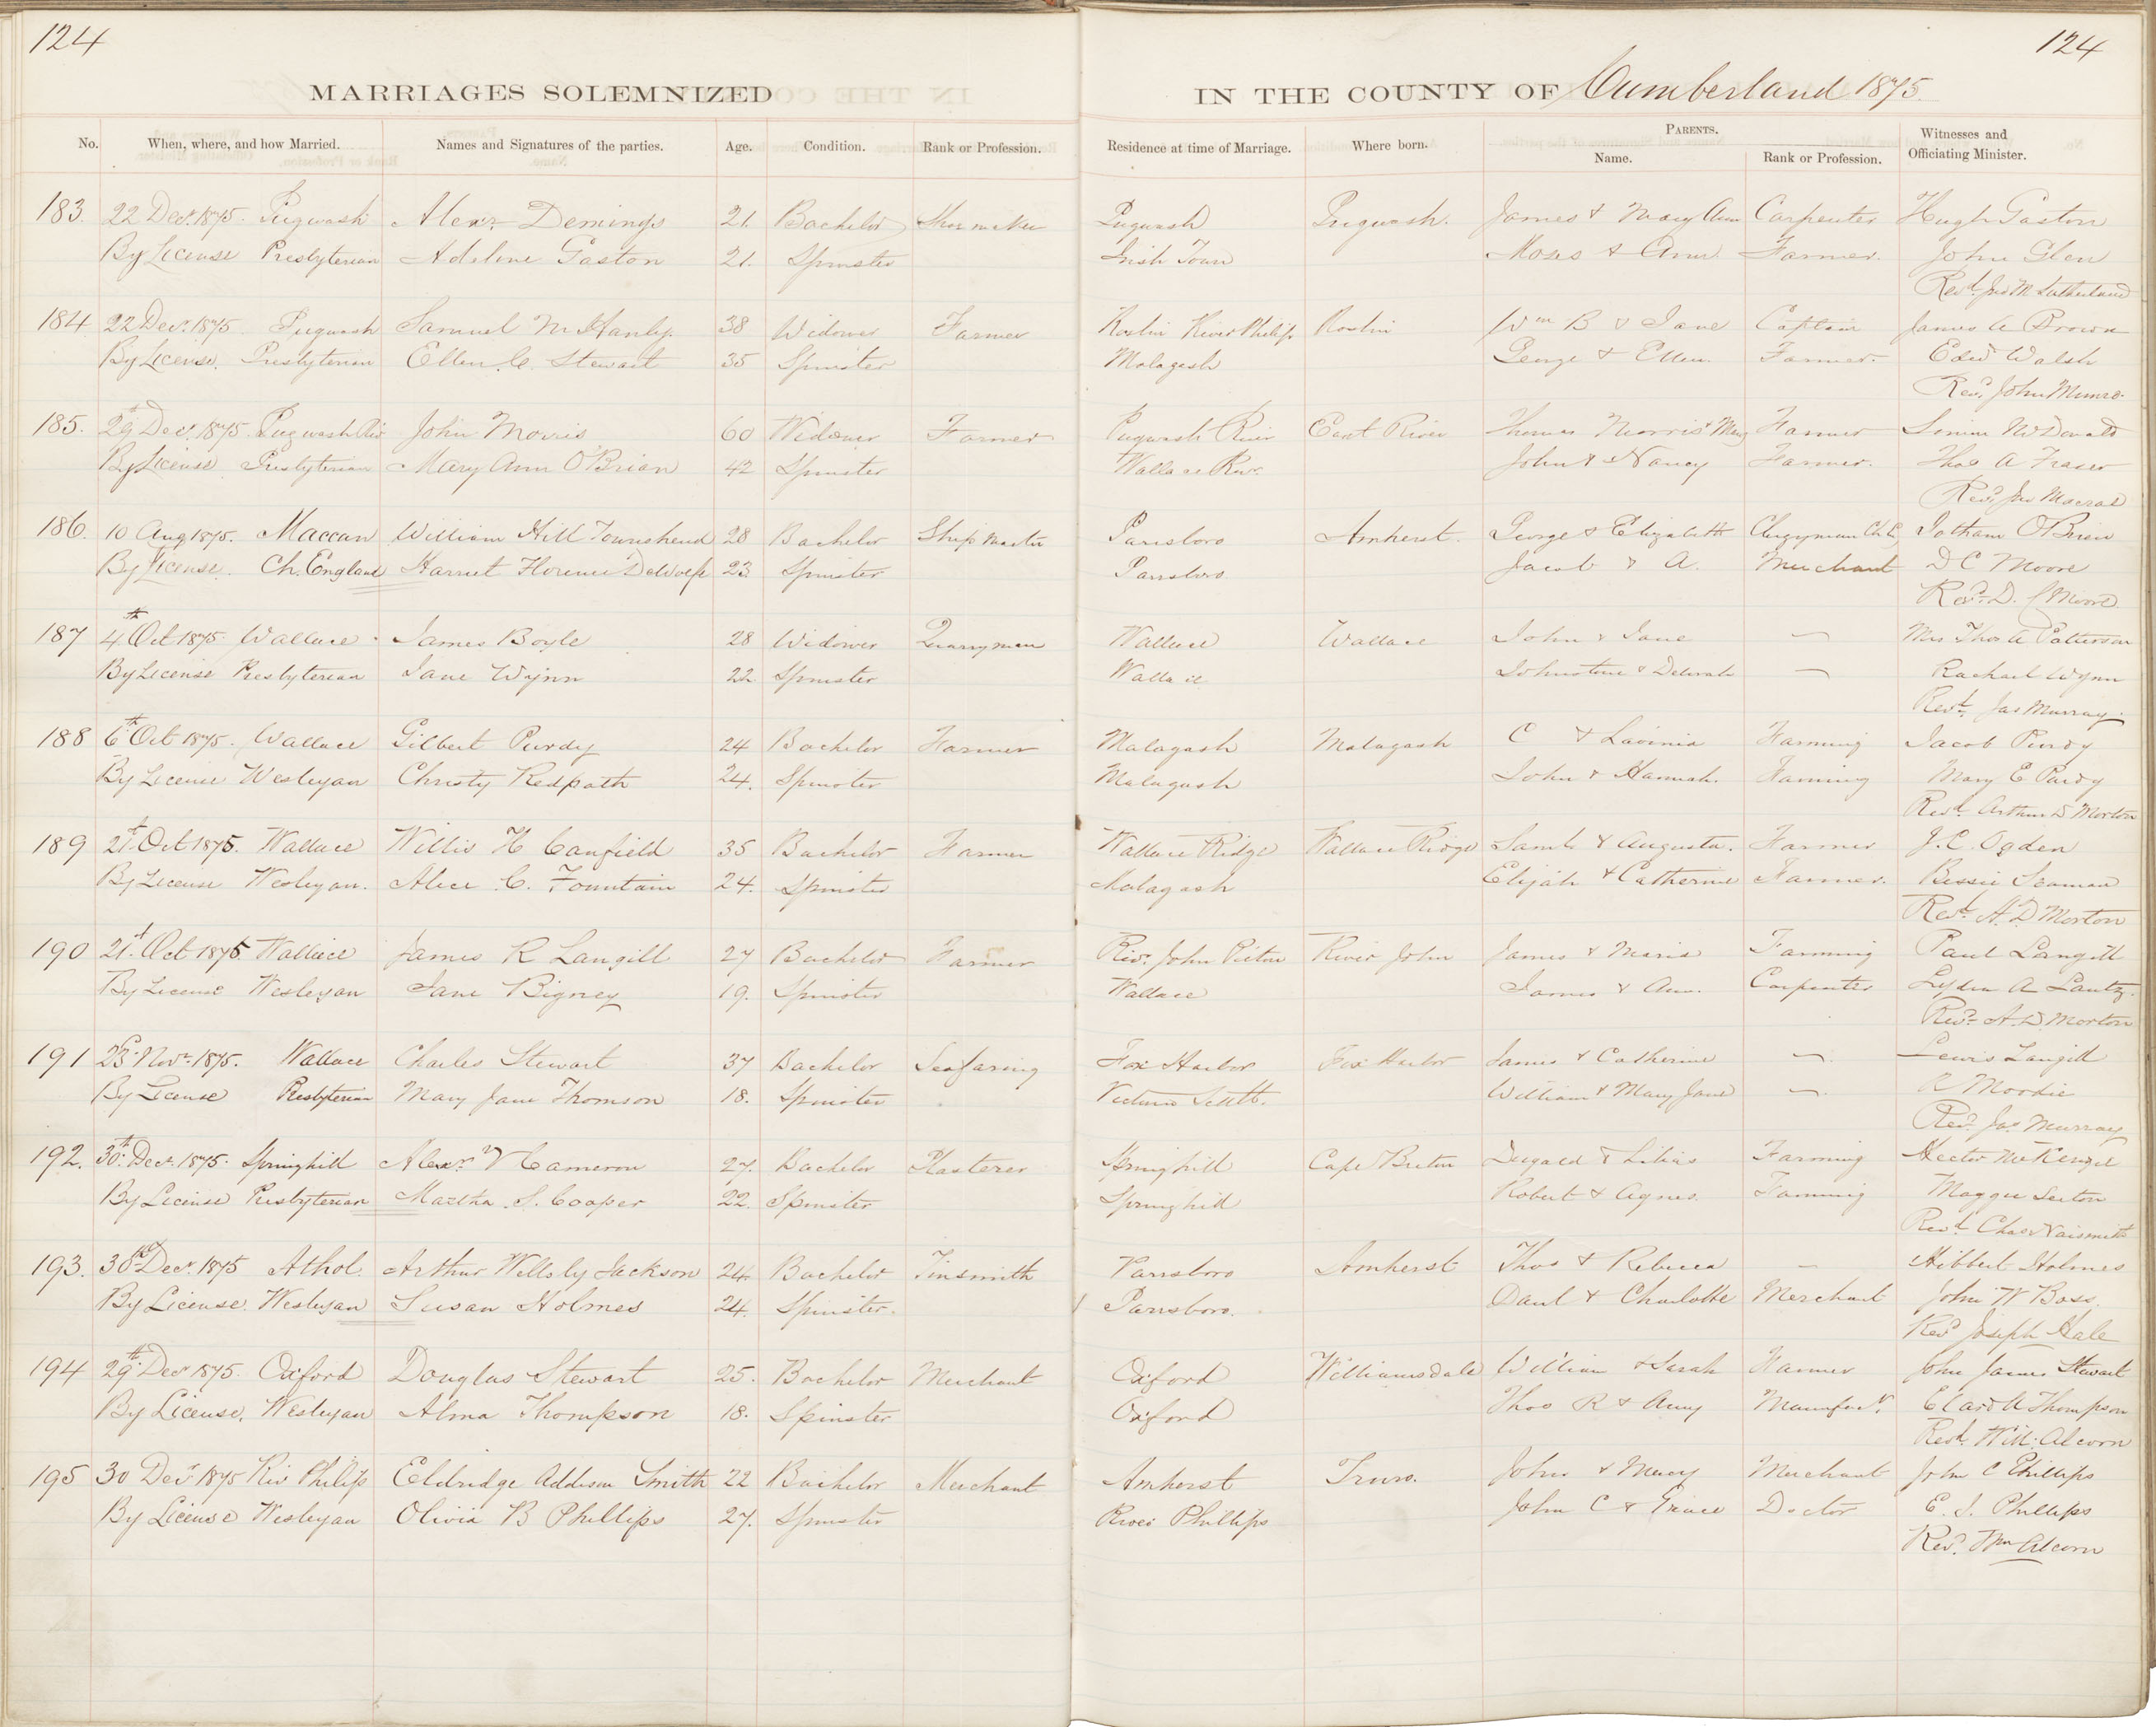 124
124
MARRIAGES SOLEMNIZED IN THE COUNTY OF Cumberland 1875.
No. When, where, and how Married. Names and Signatures of the parties. Age. Condition. Rank or Profession. Residence at time of Marriage. Where born. PARENTS. Name. Rank or Profession. Witnesses and Officiating Minister.
183. 22 Decr. 1875. Pugwash Alexr Demings 21. Bachelor Shoemaker Pugwash Pugwash. James & Mary Ann Carpenter Hugh Gaston
By License Presbyterian Adeline Gaston 21. Spinster Irish Town Moses & Ann Farmer. John Glen
Revd. Jno M Sutherland
184 22 Decr. 1875. Pugwash Samuel McHanly. 38 Widower Farmer Roslin River Philip Roslin Wm B & Jane Captain James A Brown
By License. Presbyterian Ellen C. Stewart 35 Spinster Malagash George & Ellen. Farmer. Edwd Walsh
Revd. John Munro.
185. 29 Decr. 1875. Pugwash Riv John Morris 60 Widower Farmer Pugwash River East River Thomas Morris & Mary Farmer McDonald
By License Presbyterian Mary Ann O'Brian 42 Spinster Wallace Rivr. John & Nancy Farmer. Thos A Fraser
Revd. Jno
186. 10 Aug 1875. Maccan William Hill Townshend 28 Bachelor Ship Master Parrsboro Amherst. George & Elizabeth Clergyman Ch E. Jotham O'Brien
By License. Ch. England Harriet Florence DeWolfe 23. Spinster Parrsboro Jacob & A. Merchant D C Moore
Revd. D. C Moore
187 4th Oct 1875. Wallace. James Boyle 28 Widower Quarryman Wallace Wallace John & Jane — Mrs Thos A Patterson
By License Presbyterian Jane Wynn 22 Spinster Wallace Johnstone & Deborah — Rachael Wynn
Revd. Jas Murray.
188 6th Oct 1875. Wallace Gilbert Purdy 24 Bachelor Farmer Malagash Malagash C & Lavinia Farming Jacob Purdy
By License Wesleyan Christy Redpath 24. Spinster Malagash John & Hannah. Farming Mary E Purdy
Revd. Arthur D Morton
189 21t. Oct 1875. Wallace Willis H Canfield 35 Bachelor Farmer Wallace Ridge Wallace Ridge Saml & Augusta. Farmer J. C. Ogden
By License Wesleyan. Alice C. Fountain 24. Spinster Malagash Elijah & Catherine Farmer. Bessie Seaman
Revd. A. D Morton
190 21t. Oct 1875 Wallace James R Langill 27 Bachelor Farmer Rivr. John Pictou River John James & Maria Farming Paul Langill
By License Wesleyan Jane Bigney 19. Spinster Wallace James & Ann. Carpenter Lydia A Lantz.
Revd. A. D. Morton
191 23d. Novr. 1875. Wallace Charles Stewart 37 Bachelor Seafaring Fox Harbor Fox Harbor James & Catherine — Lewis Langill
By License Presbyterian Mary Jane Thomson 18. Spinster Victoria Settlt. William & Mary Jane — R Moodie
Revd. Jas Murray
192. 30th. Decr. 1875. Springhill Alexr Cameron 27. Bachelor Plasterer Springhill Cape Breton Dugald & Lilias Farming Hector McKenzie
By License Presbyterian Martha S. Cooper 22. Spinster Springhill Robert & Agnes. Farming Maggie Seiton
Revd. Chas Naismith
193. 30th Decr. 1875 Athol. Arthur Wellsly Jackson 24. Bachelor Tinsmith Parrsboro Amherst Thos & Rebecca — Hibbert Holmes
By License. Wesleyan Susan Holmes 24. Spinster. Parrsboro. Danl & Charlotte Merchant John W Boss.
Revd Joseph Hale
194 29th. Decr 1875. Oxford Douglas Stewart 25. Bachelor Merchant Oxford Williamsdale William & Sarah Farmer John James Stewart
By License. Wesleyan Alma Thompson 18. Spinster Oxford Thos R & Amy Manufactr. A Thompson
Revd. Will. Alcorn
195 30 Decr 1875 Riv Philip Eldridge Addison Smith 22 Bachelor Merchant Amherst Truro. John & Mercy Merchant John C Phillips
By License Wesleyan Olivia B Phillips 27. Spinster River Phillips John C & Grace Doctor E. S. Phillips
Revd. Wm Alcorn